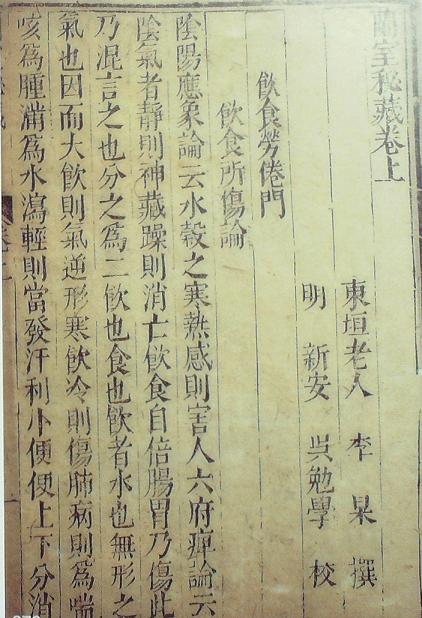 蘭室秘藏卷上
東垣老人 李杲 撰
明 新安 吳勉學 校
飲食勞倦門
飲食所傷論
陰陽應象論云水穀之寒熱感則害人六府痺論云
陰氣者靜則神藏躁則消亡飲食自倍腸胃乃傷此
乃混言之也分之爲二飲也食也飲者水也無形之
氣也因而大飲則氣逆形寒飲冷則傷肺病則爲喘
咳爲腫滿爲水瀉輕則當發汗利小便便上下分消